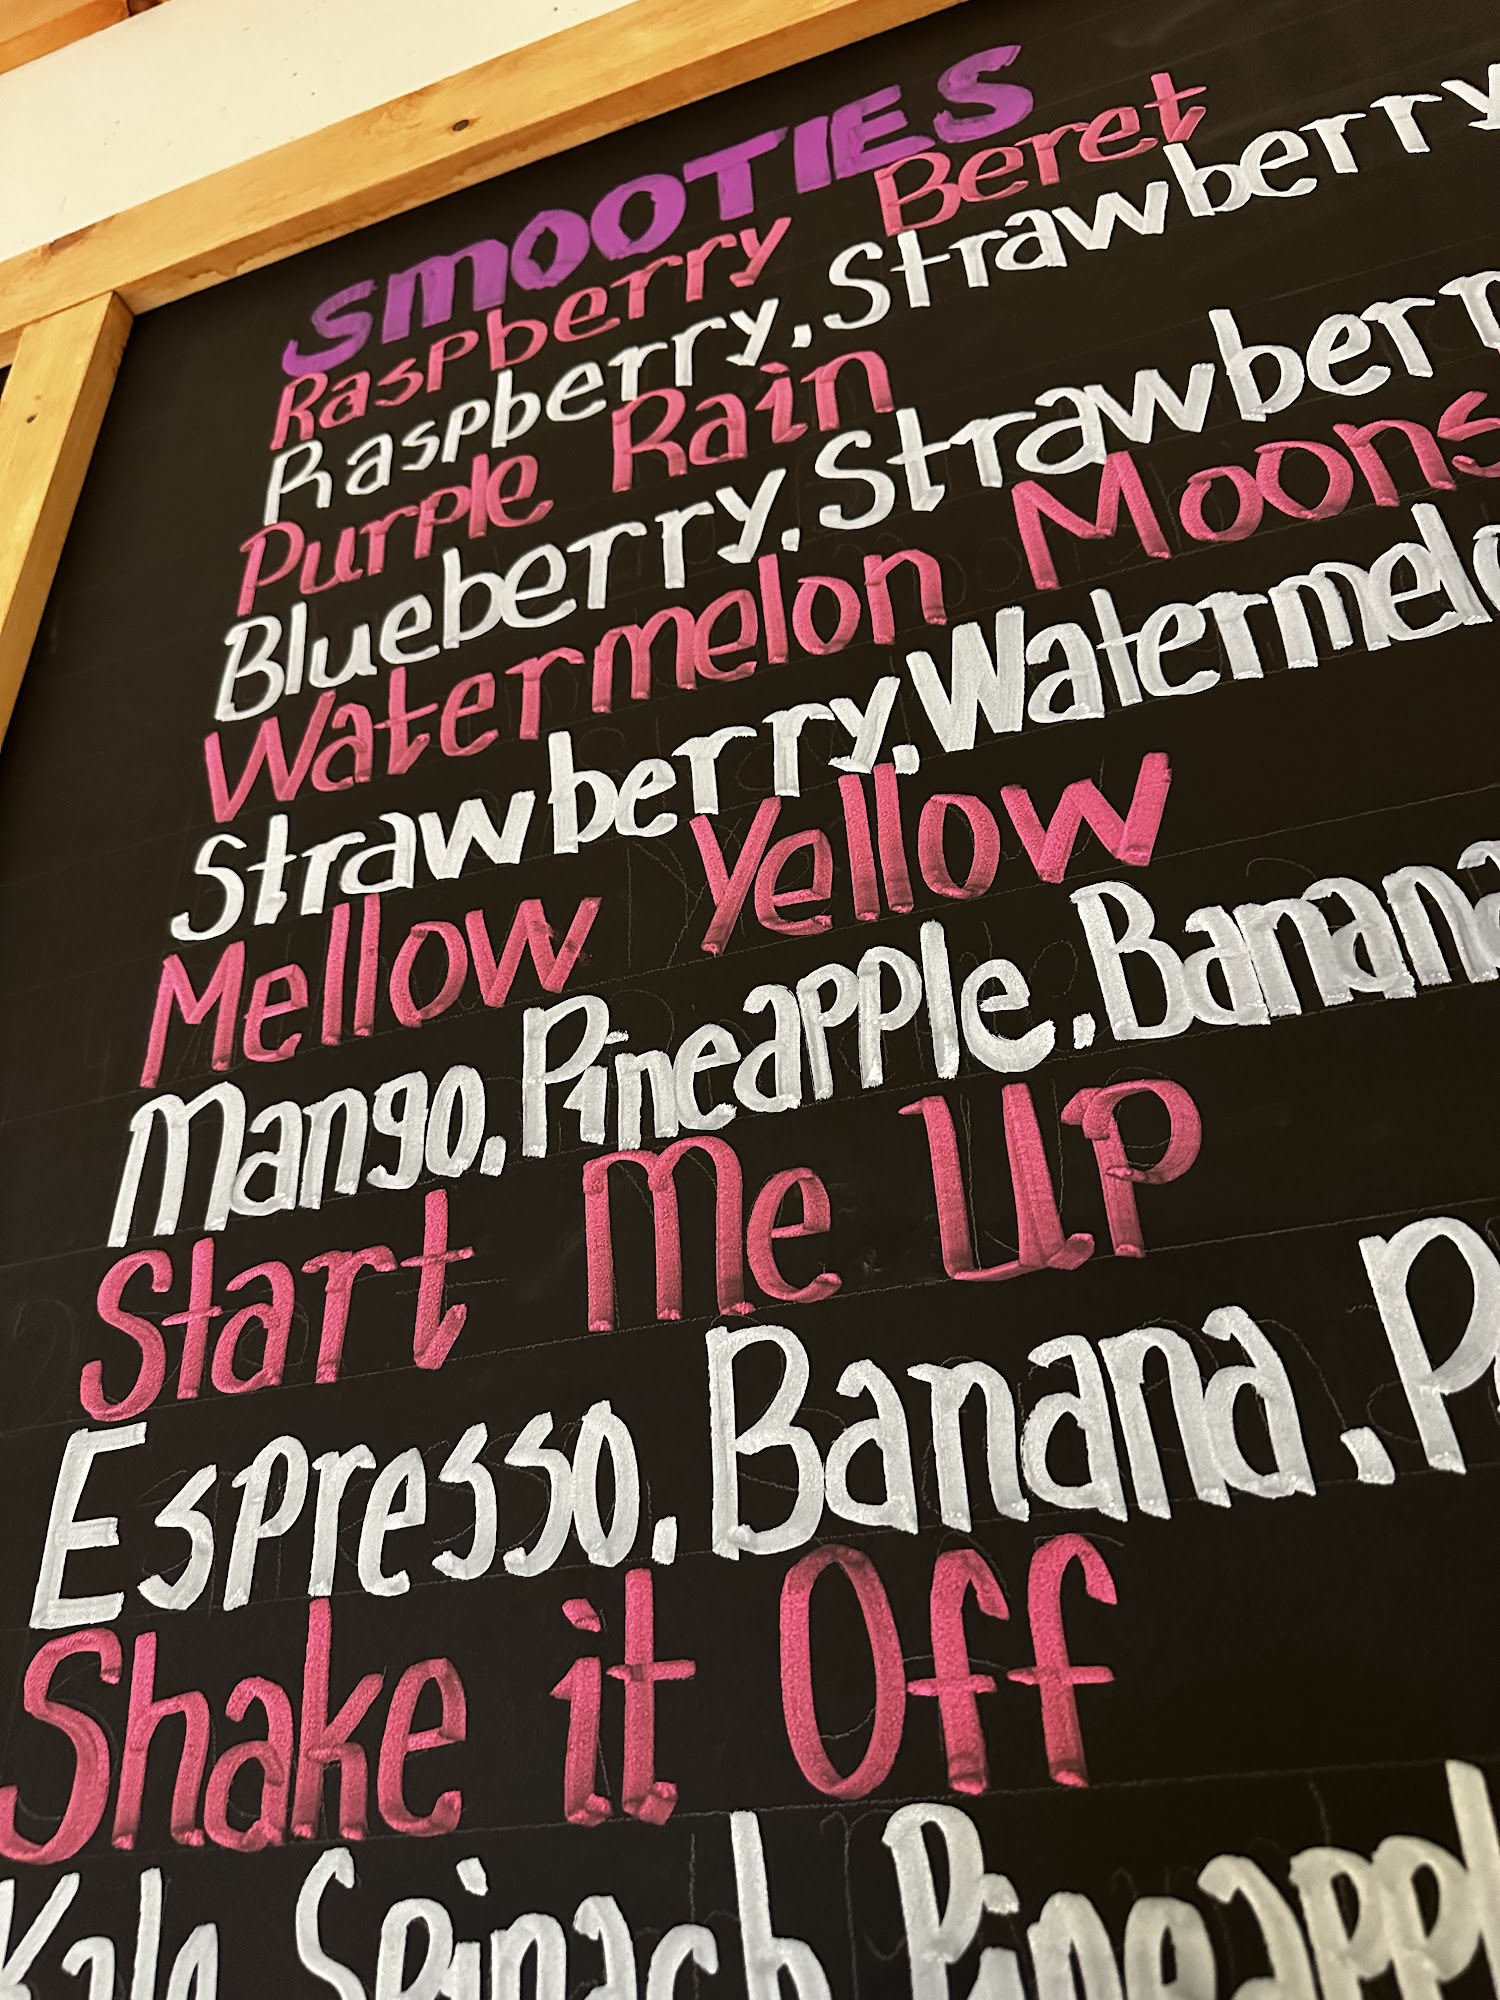 SMOOTIES
Raspberry Beret
Raspberry, Strawberry
Purple Rain
Blueberry, Strawberr
Watermelon Moons
Strawberry, Watermelo
Mellow Yellow
Mango, Pineapple, Banana
Start Me UP
Espresso, Banana, P
Shake it Off
Kale, Spinach, Pineappl